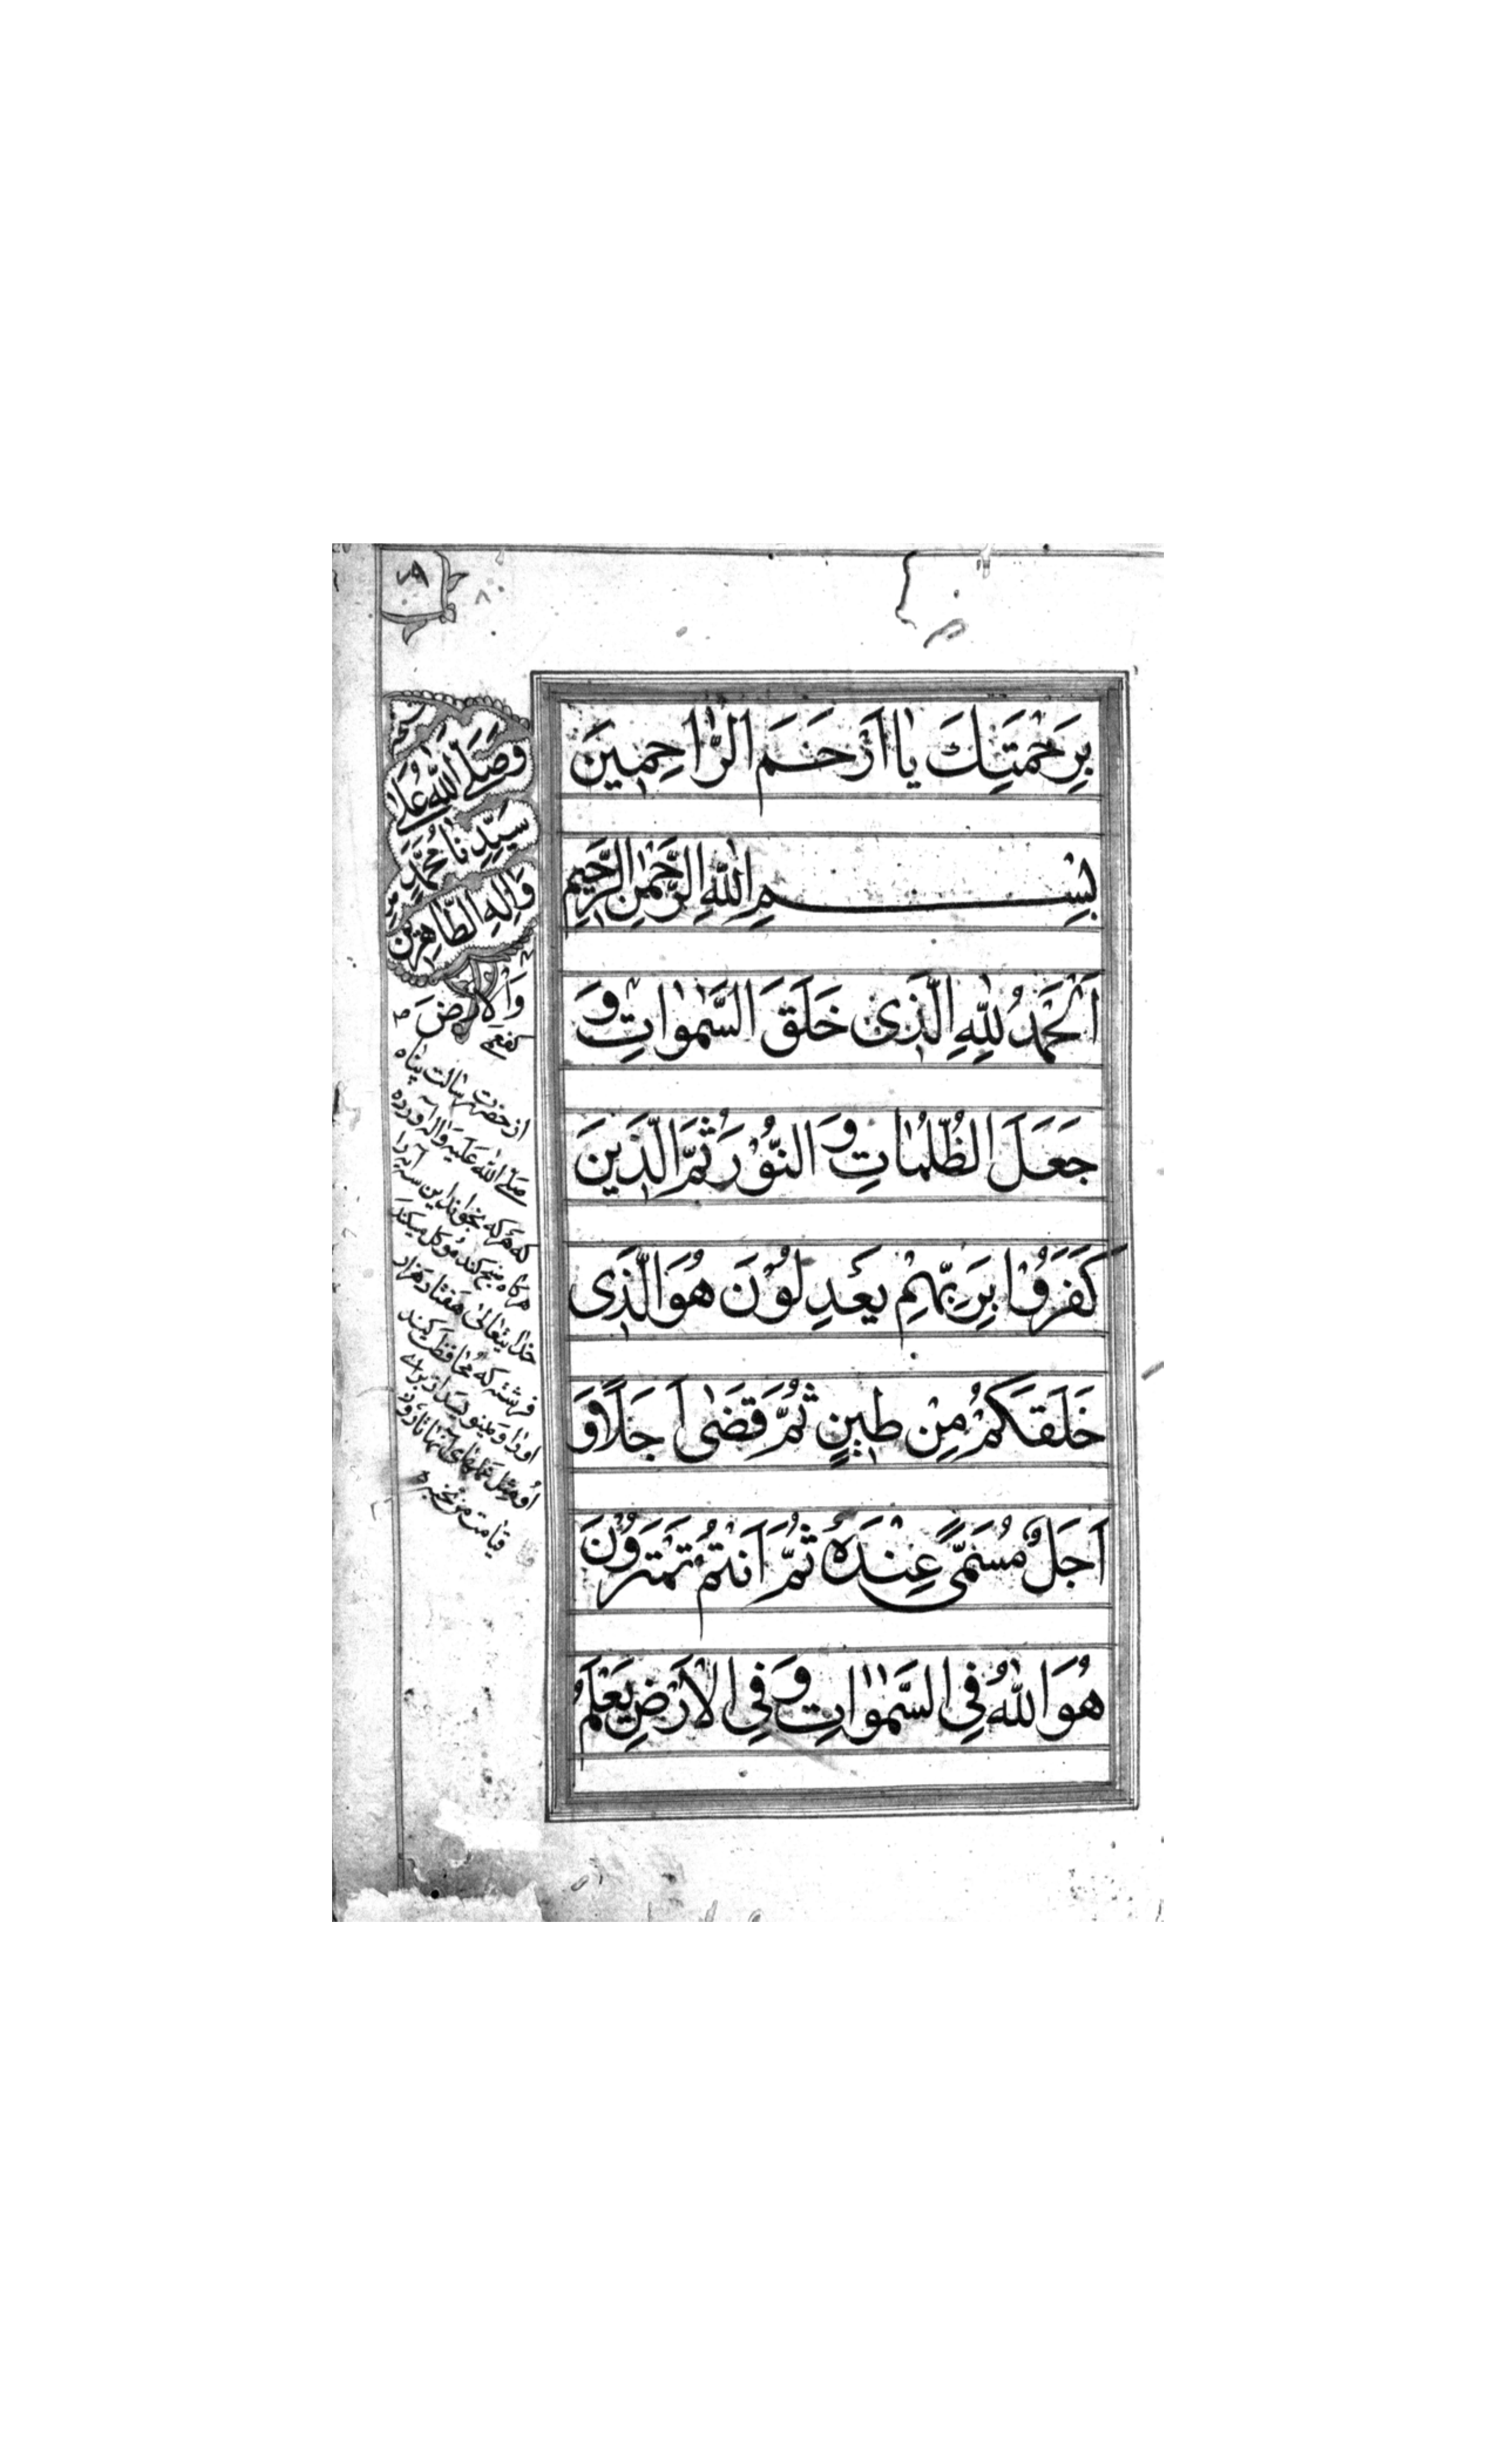 بِرَحْمَتِكَ يَا اَرْحَمَ الرَّاحِمِينَ
بِسْمِ اللهِ الرَّحْمٰنِ الرَّحِيمِ
اَلْحَمْدُ لِلّٰهِ الَّذِى خَلَقَ السَّمٰوَاتِ وَ
جَعَلَ الظُّلُمَاتِ وَ النُّوْرَ ثُمَّ الَّذِينَ
كَفَرَوُا بِرَبِّهِمْ يَعْدِلُوْنَ هُوَ الَّذِى
خَلَقَكُمْ مِنْ طِينٍ ثُمَّ قَضٰى اَجَلًا وَ
اَجَلٌ مُسَمًّى عِنْدَهُ ثُمَّ اَنْتُمْ تَمْتَرُوْنَ
هُوَ اللهُ فِى السَّمٰوَاتِ وَ فِى الْاَرْضِ يَعْلَمُ
٩
وَصَلَّى اللهُ عَلٰى
سَيِّدِنَا مُحَمَّدٍ
وَاٰلِهِ الطَّاهِرِينَ
وَالْاَرْضَ
كفعمى
از حضرت رسالت پناه
صلى الله عليه واله آورده
كه هر كه بخواند اين سه آيه را
هركاه صبح كند موكل ميكند
خدايتعالى هفتاد هزار
فرشته كه محافظت كنند
او را و مينويسند از براى
او مثل عملهاى آنها تا روز
قيامت